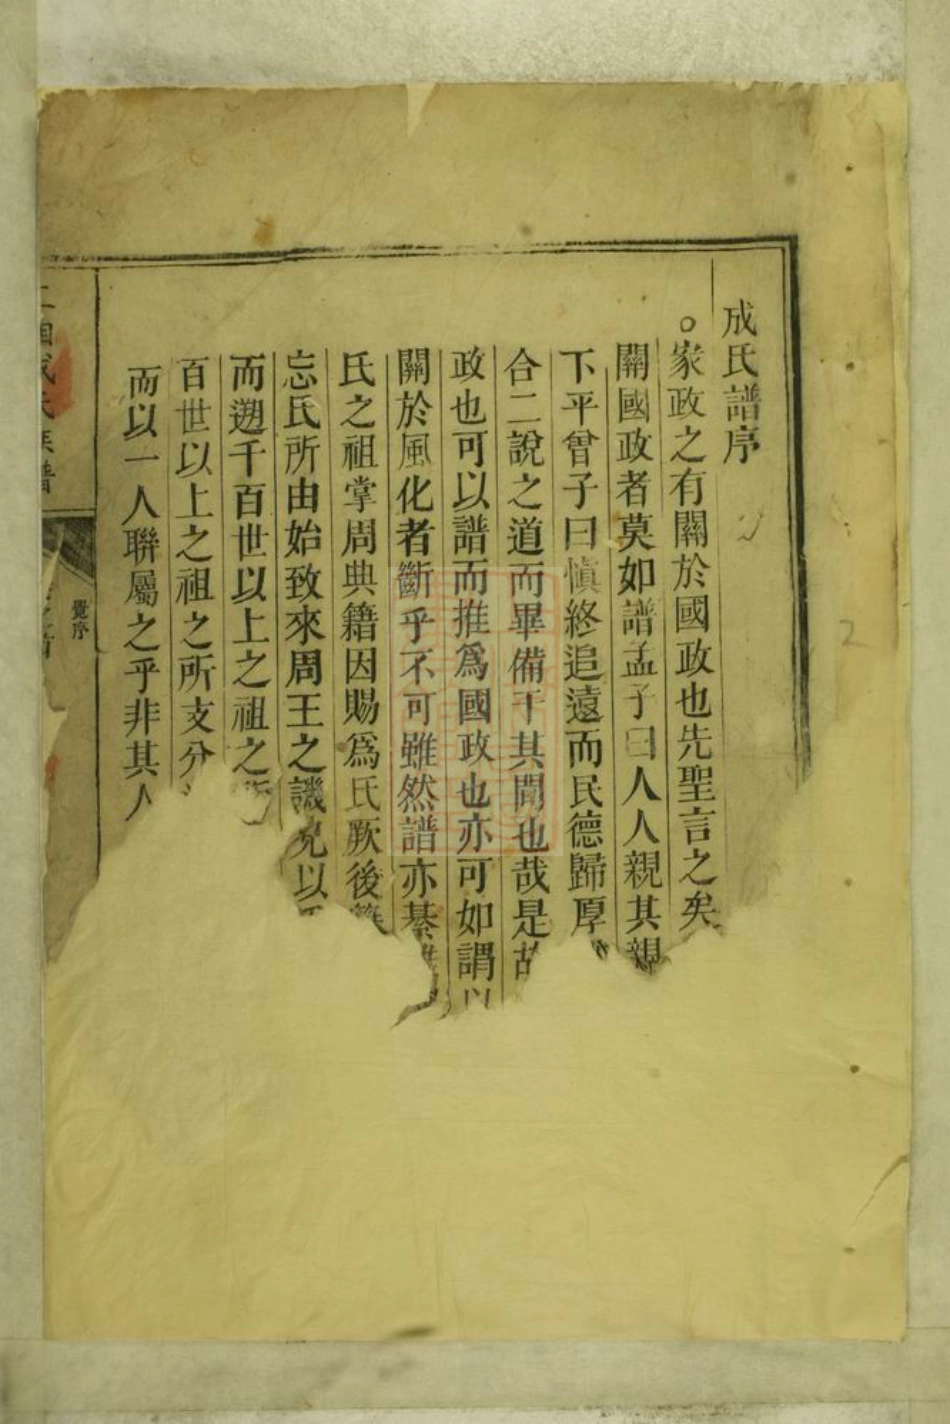 成氏譜序
家政之有關於國政也先聖言之矣
關國政者莫如譜孟子曰人人親其親
下平曾子曰慎終追遠而民德歸厚
合二說之道而畢備于其間也哉是故
政也可以譜而推爲國政也亦可如謂以
關於風化者斷乎不可雖然譜亦綦難
氏之祖掌周典籍因賜爲氏厥後
忘氏所由始致來周王之譏兄以
而遡千百世以上之祖之所
百世以上之祖之所支分
而以一人聯屬之乎非其人
成氏族譜
覺序